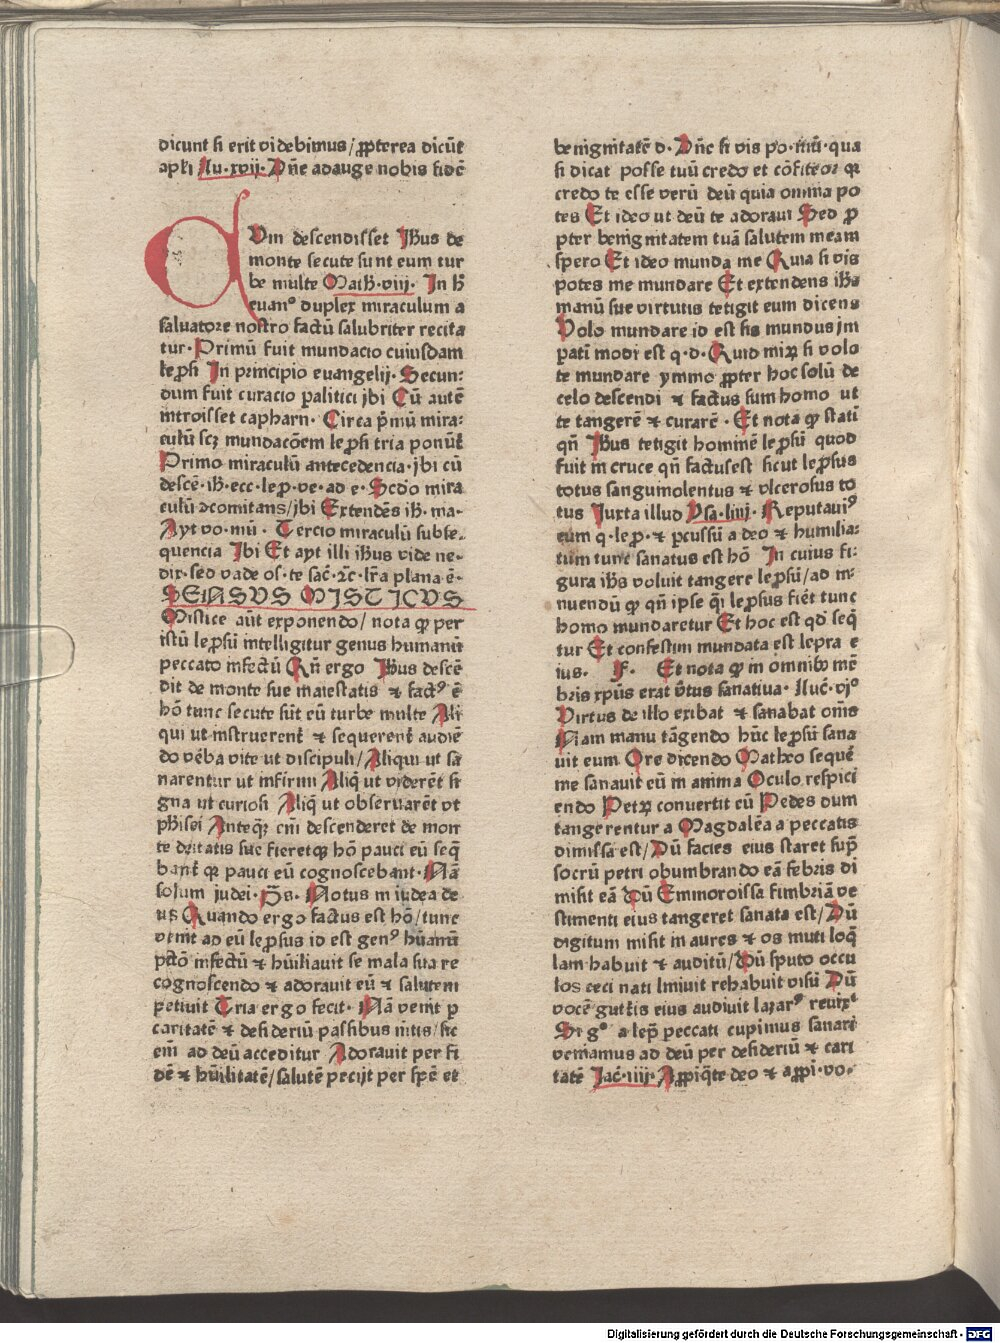 dicunt si erit videbimus/ ꝓpterea dicūt
apłi Lu·xvij· Dn̄e adauge nobis fidē
CVm descendisset Jħus de
monte secute sunt eum tur
be multe Matħ·viij· In ħ
euanᵒ duplex miraculum a
saluatore nostro factū salubriter recita
tur· Primū fuit mundacio cuiusdam
lepsi In principio euangelij· Secun:
dum fuit curacio palitici jbi Cū autē
introisset capharn· Circa p̄mū mira:
culū scꝫ mundacōem leprosi tria ponūt
Primo miraculū antecedencia·jbi cū
descē·iħ·ecc·lep·ve·ad e· Scdo mira
culū ꝯcomitans/jbi Extendēs iħ·ma·
Ayt vo·mū· Tercio miraculū subse·
quencia Jbi Et ayt illi iħus vide ne·
dix·sed vade os·te sac̄·ꝛc̄·lr̄a plana ē·
SENSVS MISTICVS
Mistice aūt exponendo/ nota ꝙ per
istū lepsū intelligitur genus humanū
peccato infectū Qn̄ ergo Jħus descē
dit de monte sue maiestatis ⁊ factꝰ ē
hō tunc secute sūt eū turbe multe Ali
qui ut instruerent̄ ⁊ sequerent̄ audiē
do vēba vite ut discipuli/ Aliqui ut sa
narentur ut infirmi Aliq̄ ut viderēt si
gna ut curiosi Aliq̄ ut obseruarēt vt
pħisei Anteq̄ꝫ em̄ descenderet de mon
te dritatis sue fieretqꝫ hō pauci eū seq̄
bant̄ qꝫ pauci eū cognoscebant· Nā
solum judei· P̄s· Notus in iudea de
us Quando ergo factus est hō/ tunc
venit ad eū lepsus id est genꝰ hūanū
pctō infectū ⁊ hūiliauit se mala sua re
cognoscendo ⁊ adorauit eū ⁊ salutem
petiuit Tria ergo fecit· Nā venit p
caritatē ⁊ desideriū passibus intis/ sic
em̄ ad deū acceditur Adorauit per fi
dē ⁊ hūilitatē/ salutē pecijt per spē et
benignitatē d· Dn̄e si vis po·mū·qua
si dicat posse tuū credo et cōfiteor qꝫ
credo te esse verū deū quia omnia po
tes Et ideo ut deū te adoraui Sed ꝓ
pter benignitatem tuā salutem meam
spero Et ideo munda me Quia si vis
potes me mundare Et extendens iħs
manū sue virtutis tetigit eum dicens
Volo mundare id est sis mundus jm
pati modi est q·d· Quid miꝝ si volo
te mundare ymmo ꝓpter hoc solū de
celo descendi ⁊ factus sum homo ut
te tangerē ⁊ curarē· Et nota ꝙ stati
qn̄ Jħus tetigit hominē lepsū quod
fuit in cruce qn̄ factusest sicut lepsus
totus sanguinolentus ⁊ vlcerosus to
tus Juxta illud Psa·liiij· Reputauiꝰ
eum q·lep·⁊ pcussū a deo ⁊ humilia:
tum tunc sanatus est hō In cuius fi:
gura iħs voluit tangere lepsū/ad in·
nuendū ꝙ qn̄ ipse q̄i lepsus fiēt tunc
homo mundaretur Et hoc est qd seq̄
tur Et confestim mundata est lepra e
ius· F· Et nota ꝙ in omnibꝫ mē
bris xp̄us erat v̄tus sanatiua· Luc̄·vjᵒ
Virtus de illo exibat ⁊ sanabat om̄s
Nam manu tāgendo hūc lepsū sana
uit eum Ore dicendo Matheo sequē
me sanauit eū in anima Oculo respici
endo Petꝝ conuertit eū Pedes dum
tangerentur a Magdalēa a peccatis
dimissa est/ Dū facies eius staret sup̄
socrū petri obumbrando eā febris di
misit eā Dū Emmoroissa fimbriā ve
stimenti eius tangeret sanata est/ Dū
digitum misit in aures ⁊ os muti loq̄
lam habuit ⁊ auditū/ Dū sputo occu
los ceci nati linuit rehabuit visū Dū
vocē gutt̄is eius audiuit lazarꝰ reuix̄
Si gᵒ a lep̄ peccati cupimus sanari
veniamus ad deū per desideriū ⁊ cari
tatē Jac̄·iiij· Appiq̄te deo ⁊ appi·vo·
Digitalisierung gefördert durch die Deutsche Forschungsgemeinschaft - DFG